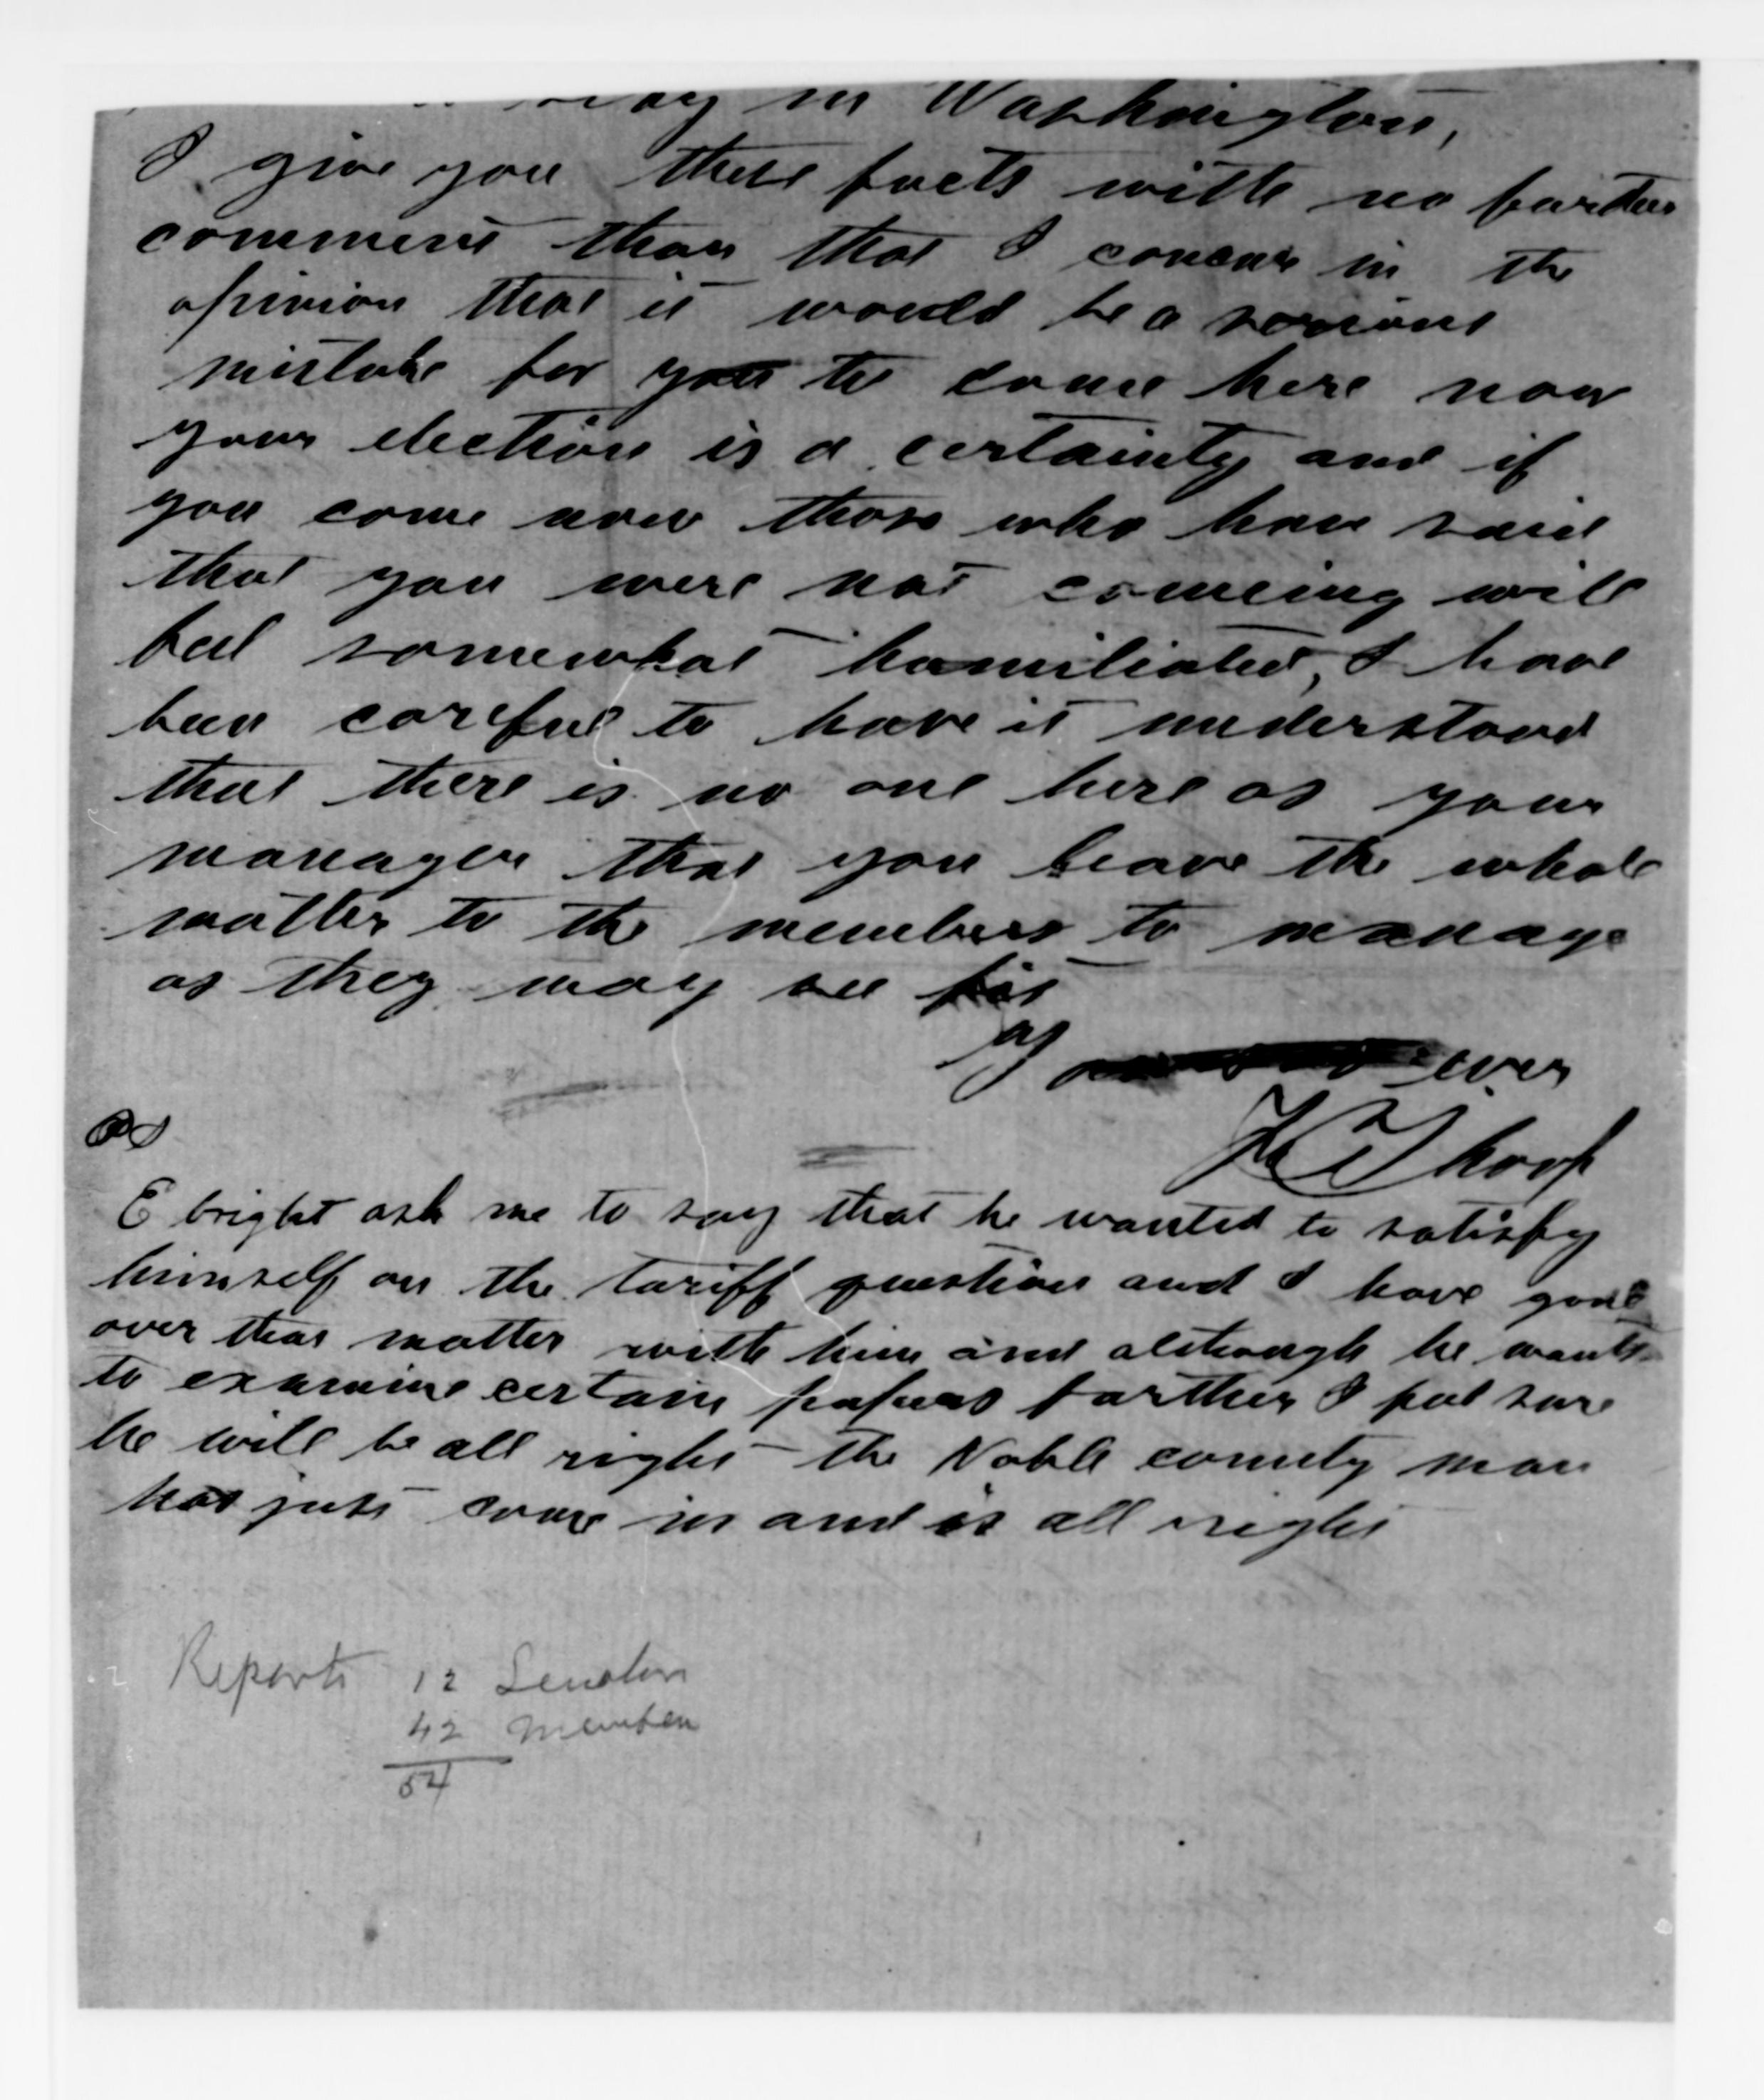 in Washington,
I give you these facts with no farther
comment than that I concur in the
opinion that it would be a serious
mistake for you to come here now
your election is a certainty and if
you come now those who have said
that you were not comeing will
feel somewhat humiliated, I have
been careful to have it understood
that there is no one here as your
manager that you leave the whole
matter to the members to manage
as they may see fit
as ever
Thoop
PS
E bright ask me to say that he wanted to satisfy
himself on the tariff question and I have gone
over that matter with him and although he wants
to examine certain papers farther I feel sure
he will be all right - the Noble county man
has just come in and is all right
Reports 12 Senators
42 Members
54